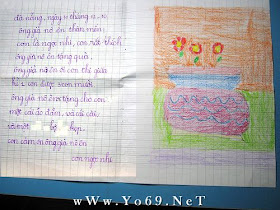 đà nẵng, ngày 11 tháng 12,
ông già nô ên thân mến,
con là ngọc nhi, con rất thích
ông già nô ên tặng quà,
ông già nô ên ơi con thi giữa
kì 1 con được 2 con mười.
ông già nô ên tặng cho con
một cái áo đầm, và cái cài,
và một bộ kẹp.
con cảm ơn ông già nô ên
con ngọc nhi
www.Yo69.NeT